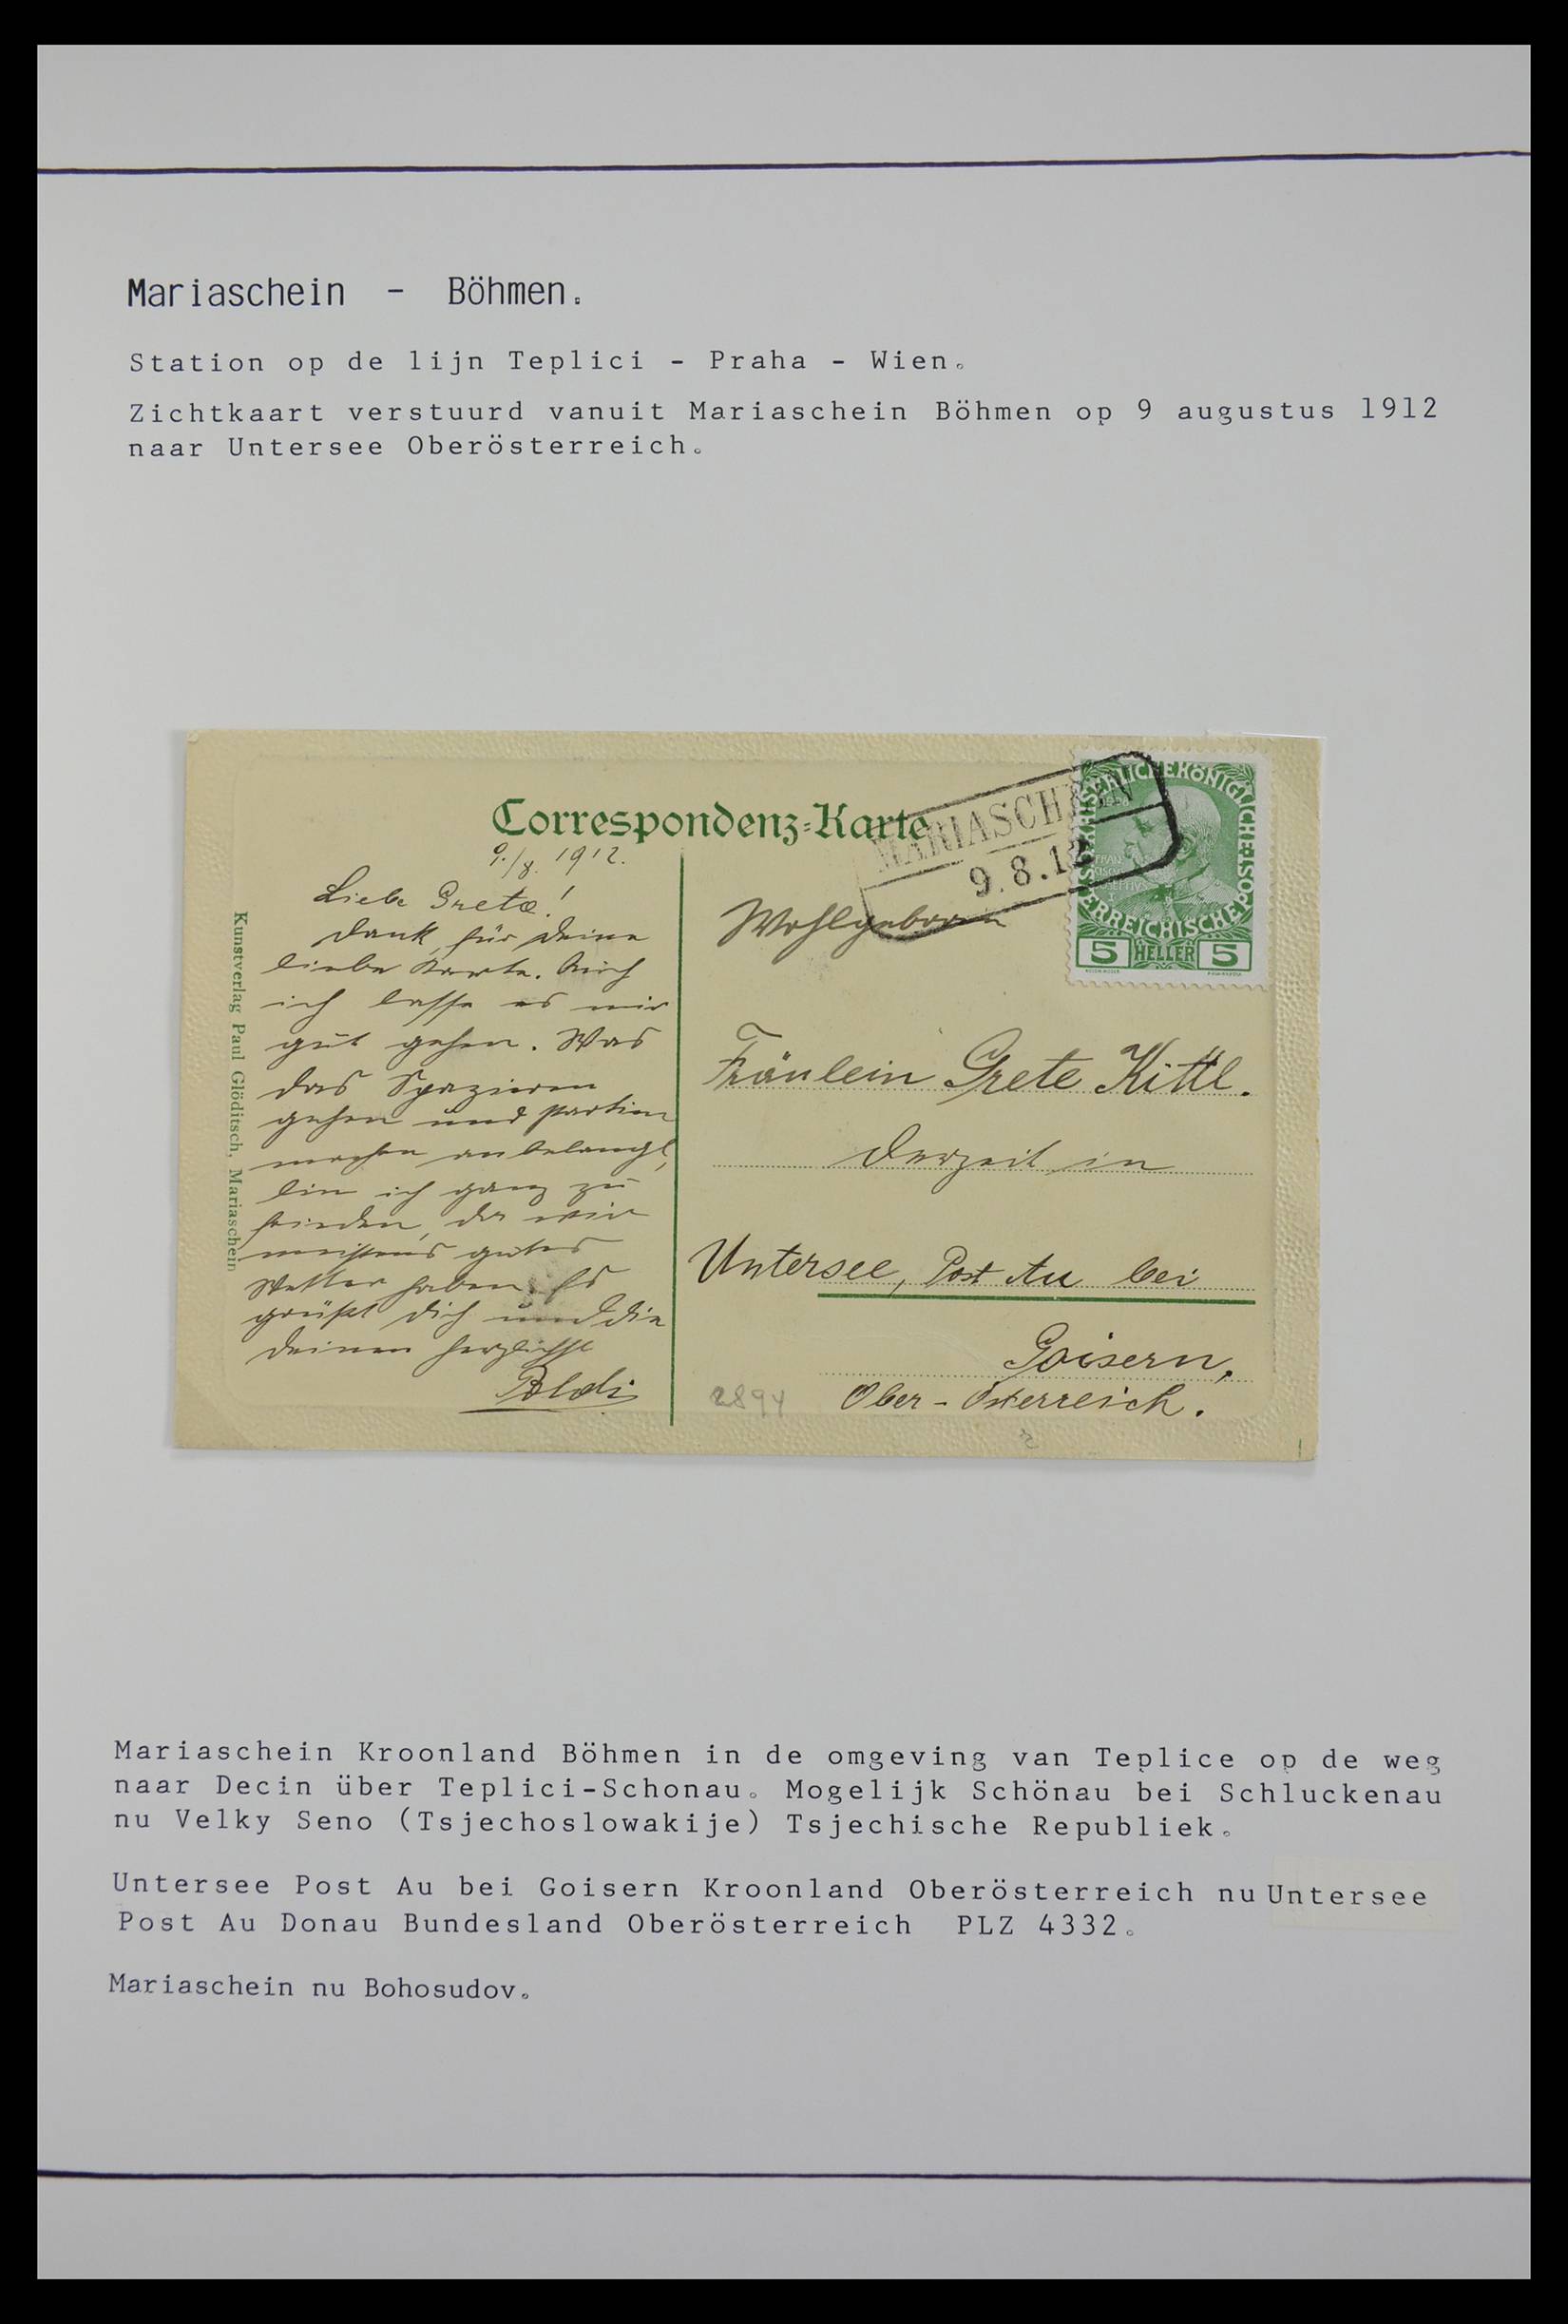 Mariaschein - Böhmen.
Station op de lijn Teplici - Praha - Wien.
Zichtkaart verstuurd vanuit Mariaschein Böhmen op 9 augustus 1912
naar Untersee Oberösterreich.
Correspondenz-Karte
9./8. 1912.
Liebe Grete!
Dank für Deine
liebe Karte. Auch
ich lasse es mir
gut gehen. Was
das Spazieren
gehen und Partien
machen anbelangt,
bin ich ganz zu
frieden, da wir
meistens gutes
Wetter haben. Es
grüßt Dich und die
Deinen herzlichst
Poldi
Kunstverlag Paul Glöditsch, Mariaschein
MARIASCHEIN
9.8.12
KAISERLICHE KÖNIGLICHE ÖSTERREICHISCHE POST
5 HELLER 5
Wohlgeboren
Fräulein Grete Kittl.
derzeit in
Untersee, Post Au bei
Goisern,
Ober-Österreich.
2894
Mariaschein Kroonland Böhmen in de omgeving van Teplice op de weg
naar Decin über Teplici-Schonau. Mogelijk Schönau bei Schluckenau
nu Velky Seno (Tsjechoslowakije) Tsjechische Republiek.
Untersee Post Au bei Goisern Kroonland Oberösterreich nu Untersee
Post Au Donau Bundesland Oberösterreich PLZ 4332.
Mariaschein nu Bohosudov.